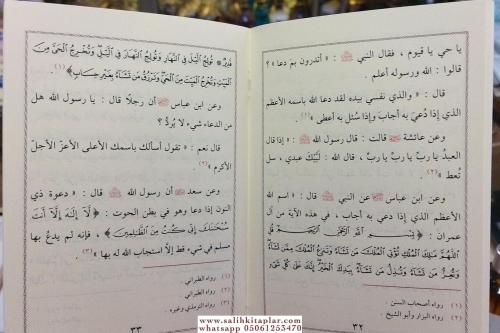 يا حي يا قيوم ، فقال النبي ﷺ : « أتدرون بم دعا » ؟
قالوا : الله ورسوله أعلم .
قال : « والذي نفسي بيده لقد دعا الله باسمه الأعظم
الذي إذا دُعيَ به أجاب وإذا سُئل به أعطى » .(١)
وعن عائشة قالت : قال رسول الله ﷺ : « إذا قال
العبدُ يا ربّ يا ربّ يا ربّ ، قال الله : لَبَّيْكَ عبدي ، سل
تُعط » .(٢)
وعن ابن عباس عن النبي ﷺ قال : « اسم الله
الأعظم الذي إذا دعي به أجاب ، في هذه الآية من آل
عمران : ﴿ بِسْمِ اللَّهِ الرَّحْمَنِ الرَّحِيمِ قُلِ
اللَّهُمَّ مَالِكَ الْمُلْكِ تُؤْتِي الْمُلْكَ مَن تَشَاءُ وَتَنزِعُ الْمُلْكَ مِمَّن تَشَاءُ
وَتُعِزُّ مَن تَشَاءُ وَتُذِلُّ مَن تَشَاءُ بِيَدِكَ الْخَيْرُ إِنَّكَ عَلَى كُلِّ شَيْءٍ
(١) رواه أصحاب السنن .
(٢) رواه البزار وأبو الشيخ .
٣٢
قَدِيرٌ * تُولِجُ اللَّيْلَ فِي النَّهَارِ وَتُولِجُ النَّهَارَ فِي اللَّيْلِ وَتُخْرِجُ الْحَيَّ مِنَ
الْمَيِّتِ وَتُخْرِجُ الْمَيِّتَ مِنَ الْحَيِّ وَتَرْزُقُ مَن تَشَاءُ بِغَيْرِ حِسَابٍ ﴾ .(١)
وعن ابن عباس أن رجلًا قال : يا رسول الله هل
من الدعاء شيء لا يُردُّ ؟
قال نعم : « تقول أسألك باسمك الأعلى الأعزّ الأجلّ
الأكرم » .(٢)
وعن سعد أن رسول الله ﷺ قال : « دعوة ذي
النون إذا دعا وهو في بطن الحوت : ﴿ لَا إِلَهَ إِلَّا أَنتَ
سُبْحَانَكَ إِنِّي كُنتُ مِنَ الظَّالِمِينَ ﴾ ، فإنه لم يدعُ بها
مسلم في شيء قط إلّا استجاب الله له بها » .(٣)
(١) رواه الطبراني .
(٢) رواه الطبراني .
(٣) رواه الترمذي وغيره .
٣٣
www.salihkitaplar.com
whatsapp 05061253470